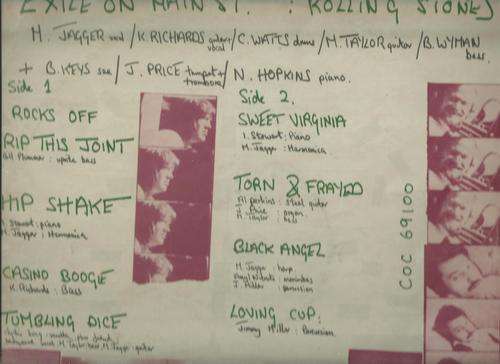 EXILE ON MAIN ST. : ROLLING STONES
M. JAGGER vocal / K. RICHARDS guitar + vocal / C. WATTS drums / M. TAYLOR guitar / B. WYMAN bass.
+ B. KEYS sax / J. PRICE trumpet + trombone / N. HOPKINS piano.
Side 1
ROCKS OFF
RIP THIS JOINT
Bill Plummer : upright bass
HIP SHAKE
I. Stewart : piano
M. Jagger : Harmonica
CASINO BOOGIE
K. Richards : Bass
TUMBLING DICE
M. Taylor : bass. M. Jagger : guitar
Side 2.
SWEET VIRGINIA
I. Stewart : Piano
M. Jagger : Harmonica
TORN & FRAYED
Al Perkins : Steel guitar
J. Price : organ
M. Taylor : bass
BLACK ANGEL
M. Jagger harp
marimbas
J. Miller : percussion
LOVING CUP :
Jimmy Miller : Percussion
COC 69100